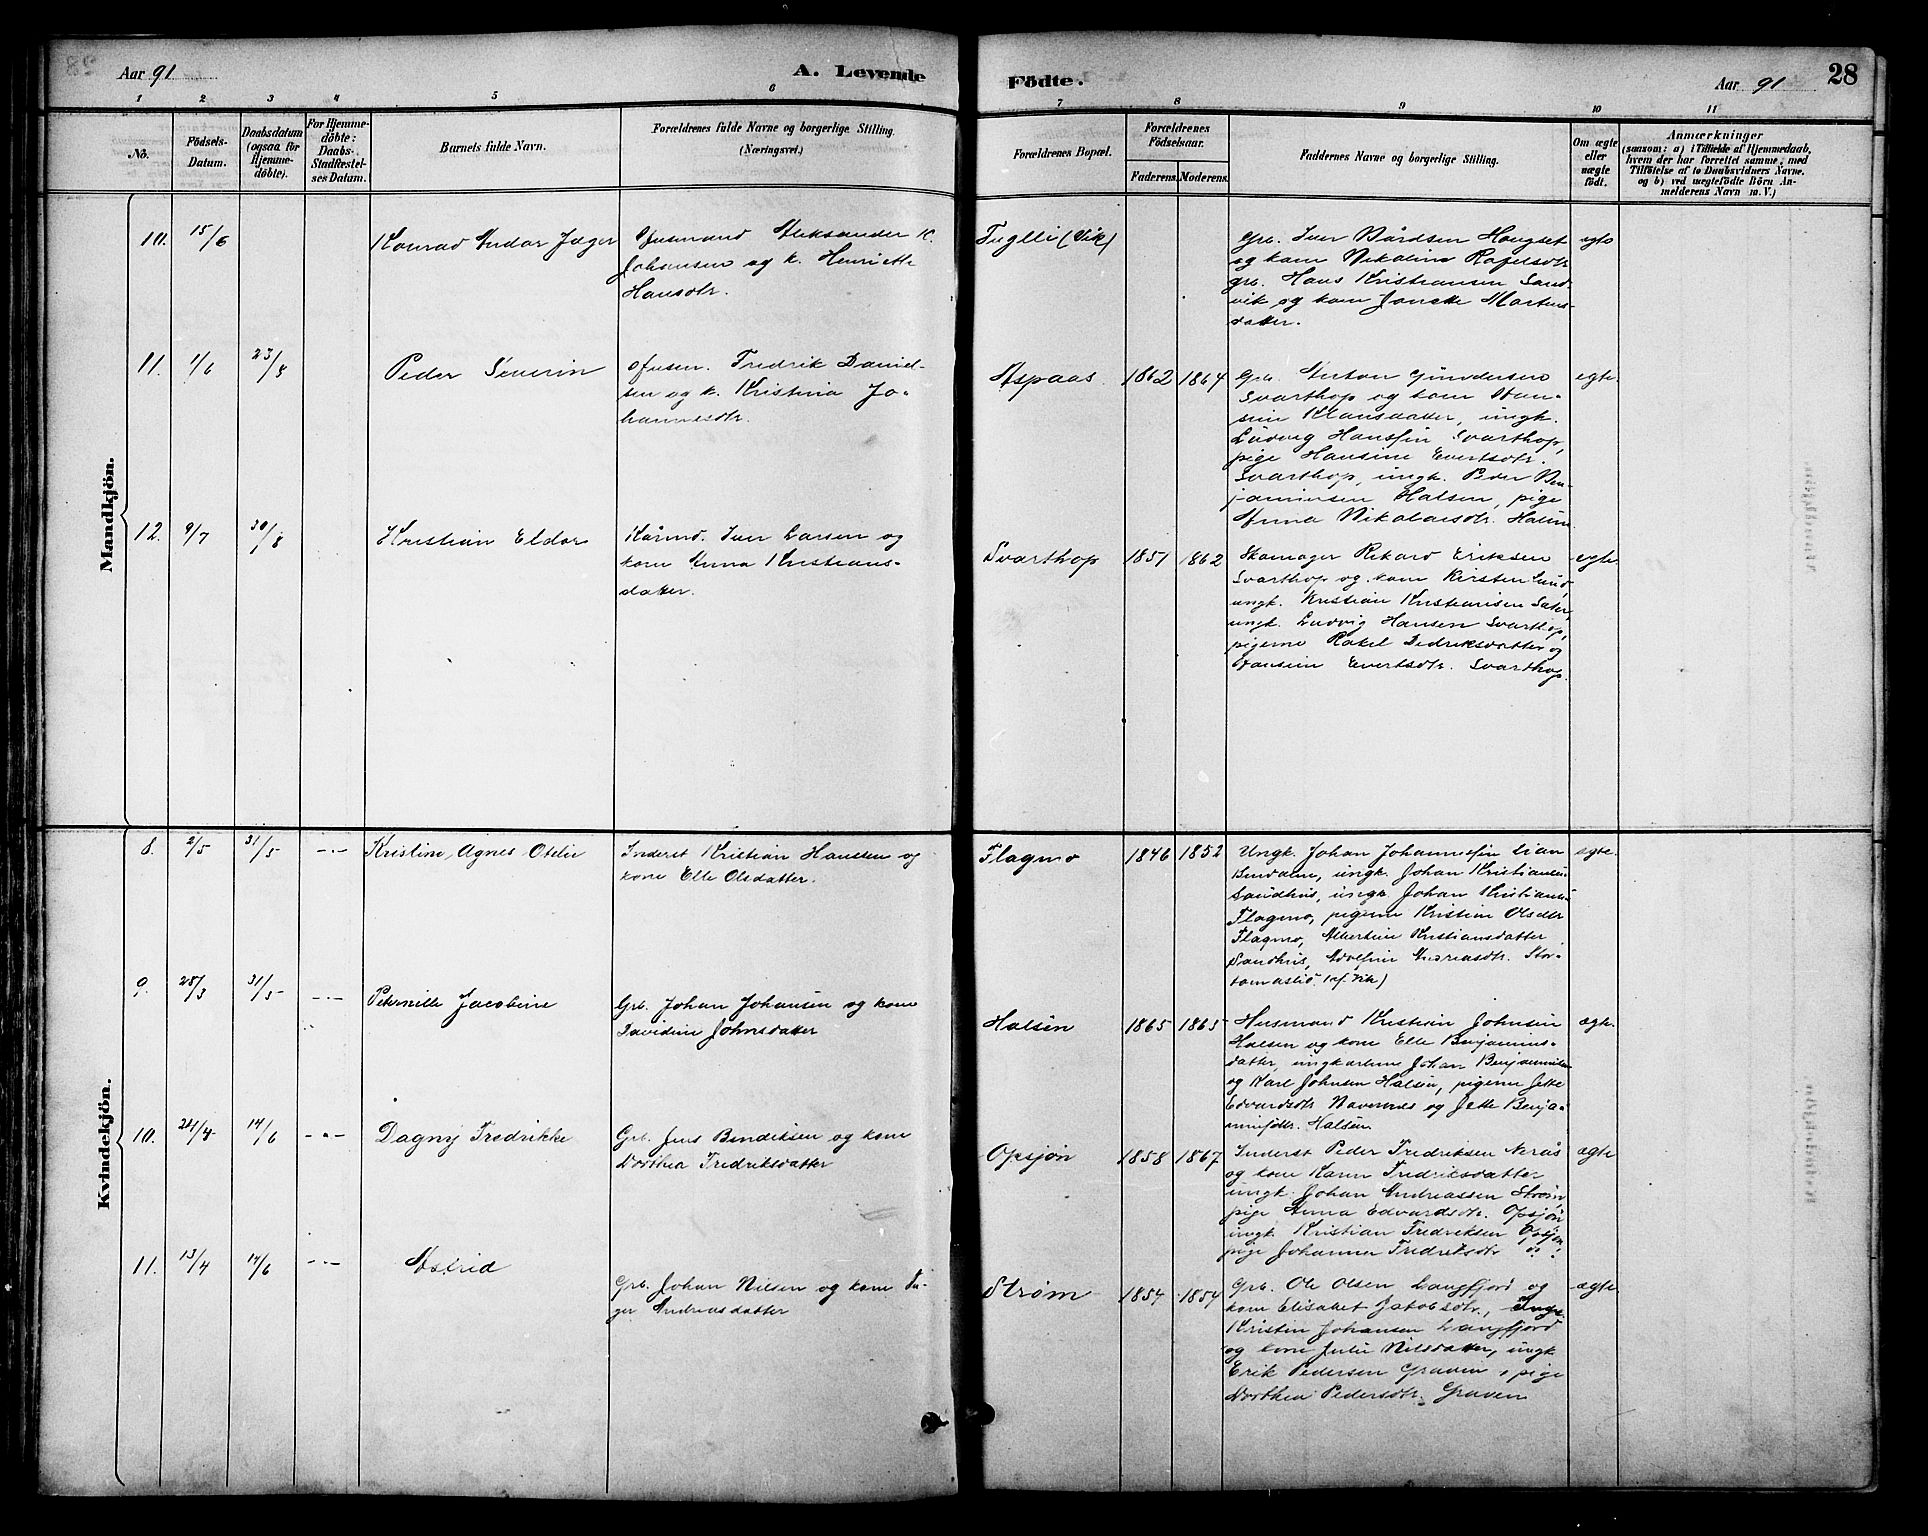 Aar 91
A. Levende
Födte.
Aar 91
28
1 2 3 4 5 6 7 8 9 10 11
No.
Födsels-
Datum.
Daabsdatum
(ogsaa for
Hjemme-
döbte).
For Hjemme-
döbte:
Daabs-
Stadfæstel-
ses Datum.
Barnets fulde Navn.
Forældrenes fulde Navne og borgerlige Stilling.
(Næringsvei.)
Forældrenes Bopæl.
Forældrenes
Födselsaar.
Faderens.
Moderens.
Faddernes Navne og borgerlige Stilling.
Om ægte
eller
uægte
födt.
Anmærkninger
(saasom: a) i Tilfælde af Hjemmedaab,
hvem der har forrettet samme, med
Tilföielse af to Daabsvidners Navne,
og b) ved uægtefödte Börn An-
melderens Navn m. V.)
Mandkjön.
10. 15/6
Konrad Andor Jæger
Husmand Aleksander K.
Johansen og k. Henriette
Hansdtr.
Fuglli (Vik)
Grb. Iver Bårdsen Haugset
og kone Nikoline Rafelsdtr
grb. Hans Kristiansen Sand-
vik og kone Jonette Martens-
datter.
egte
11. 1/6 23/8
Peder Severin
Husm. Fredrik Daniel-
sen og k. Kristina Jo-
hannesdtr.
Aspaas.
1862 1864
Grb. Anton Gundersen
Svarthop og kone Han-
sine Klausdatter, ungk.
Ludvig Hanssen Svarthop,
pige Hansine Evertsdtr.
Svarthop, ungk. Peder Ben-
jaminsen Halsen, pige
Anna Nikolaisdtr. Halsen
egte.
12. 9/7 30/8
Kristian Eldor
Kårmd. Iver Larsen og
kone Anna Kristians-
datter.
Svarthop
1851 1862
Skomager Rikard Eriksen
Svarthop og kone Kirsten Lund,
ungk. Kristian Kristiansen Sæter,
ungk. Ludvig Hansen Svarthop,
pigerne Rakel Dedriksdatter og
Hansine Evertsdtr. Svarthop.
egte.
Kvindekjön.
8. 2/5 31/5 -·-
Kristine Agnes Otelie
Inderst Kristian Hansen og
kone Elle Olsdatter.
Flagmo
1846 1852
Ungk. Johan Johannessen Lian
ungk. Johan Kristiansen
Sandhus, ungk. Johan Kristians-
Flagmo, pigerne Kristine Olsdtr
Flagmo, Albertine Kristiansdatter
Sandhus, Adolfine Andreasdtr. Stor-
(af Vik)
egte.
9. 28/3 31/5 -·-
Peternille Jacobine
Grb. Johan Johansen og kone
Davidine Johnsdatter
Halsen
1865 1865
Husmand Kristian Johnsen
Halsen og kone Elle Benjamins-
datter, ungkarlene Johan Benjaminsen
og Karl Johnsen Halsen, pigerne Jette
Edvardsdtr Navernes og Jette Benja-
minsdtr. Halsen
ægte.
10. 24/4 14/6 -·-
Dagny Fredrikke
Grb. Jens Bendiksen og kone
Dorthea Fredriksdatter
Opsjøn
1858 1867
Inderst Peder Fredriksen Nerås
og kone Karen Fredriksdatter
ungk. Johan Andreassen Strøm,
pige Anna Edvardsdtr. Opsjøn
ungk. Kristian Fredriksen Opsjøn
pige Johanna Fredriksdtr
ægte
11. 13/4 14/6 -·-
Astrid
Grb. Johan Nilsen og kone In-
ger Andreasdatter
Strøm
1854 1854
Grb. Ole Olsen Langfjord og
kone Elisabet Jakobsdtr.,
Kristen Johansen Langfjord
og kone Julie Nilsdatter, ungk
Erik Pedersen Graven, pige
Dorthea Pedersdtr. Graven
ægte.